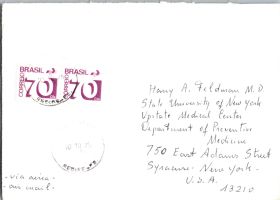 BRASIL BRASIL
CORREIO 70 CORREIO 70
Harry A. Feldman M.D.
State University of New York
Upstate Medical Center
Department of Preventive
Medicine
750 East Adams Street
Syracuse - New York -
U.S.A.
13210
- via aérea -
- air mail -